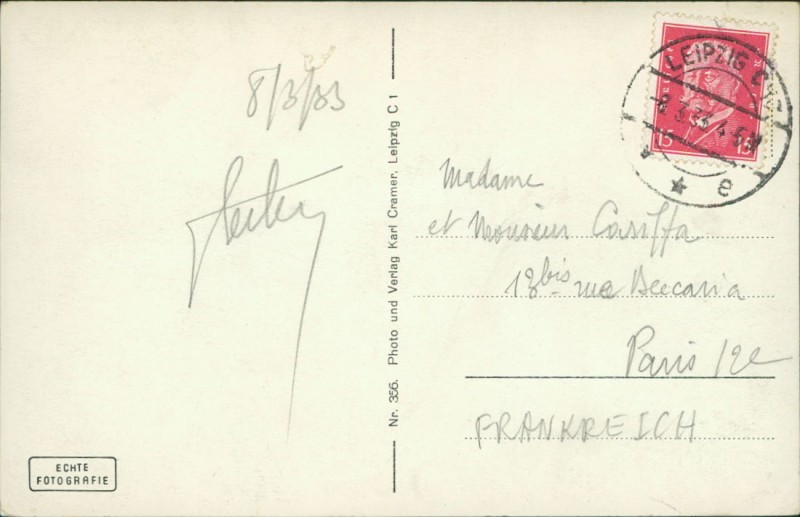 8/3/33
Nr. 356. Photo und Verlag Karl Cramer, Leipzig C 1
ECHTE
FOTOGRAFIE
LEIPZIG C
8.3.33.4-5
* 8
15 15
Madame
et Monsieur Casiffa
18bis rue Beccaria
Paris 12e
FRANKREICH